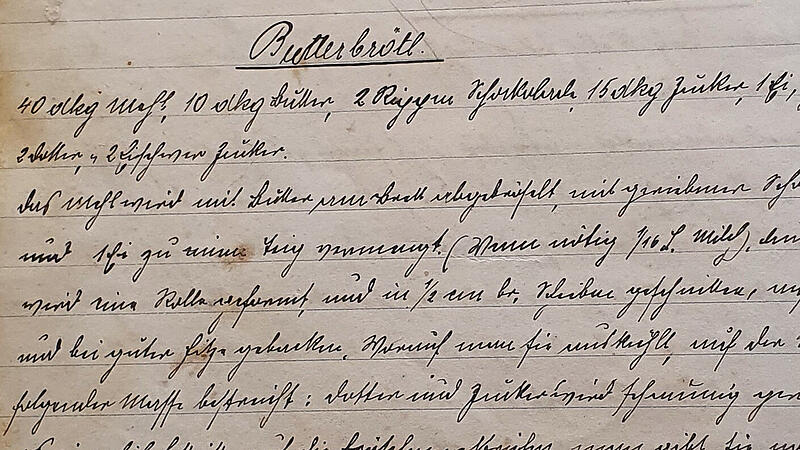 Butterbrötl.
40 dkg Mehl, 10 dkg Butter, 2 Rippen Schokolade, 15 dkg Zucker, 1 Ei,
2 Dotter, 2 Eischwer Zucker.
Das Mehl wird mit Butter am Brett abgebröselt, mit geriebener
und 1 Ei zu einem Teig vermengt. (Wenn nötig 1/16 L. Milch),
wird eine Rolle geformt, und in 1/2 cm br. Scheiben geschnitten,
und bei guter Hitze gebacken. Worauf man sie auskühlt, auf der
folgender Masse bestreicht: Dotter und Zucker wird schaumig